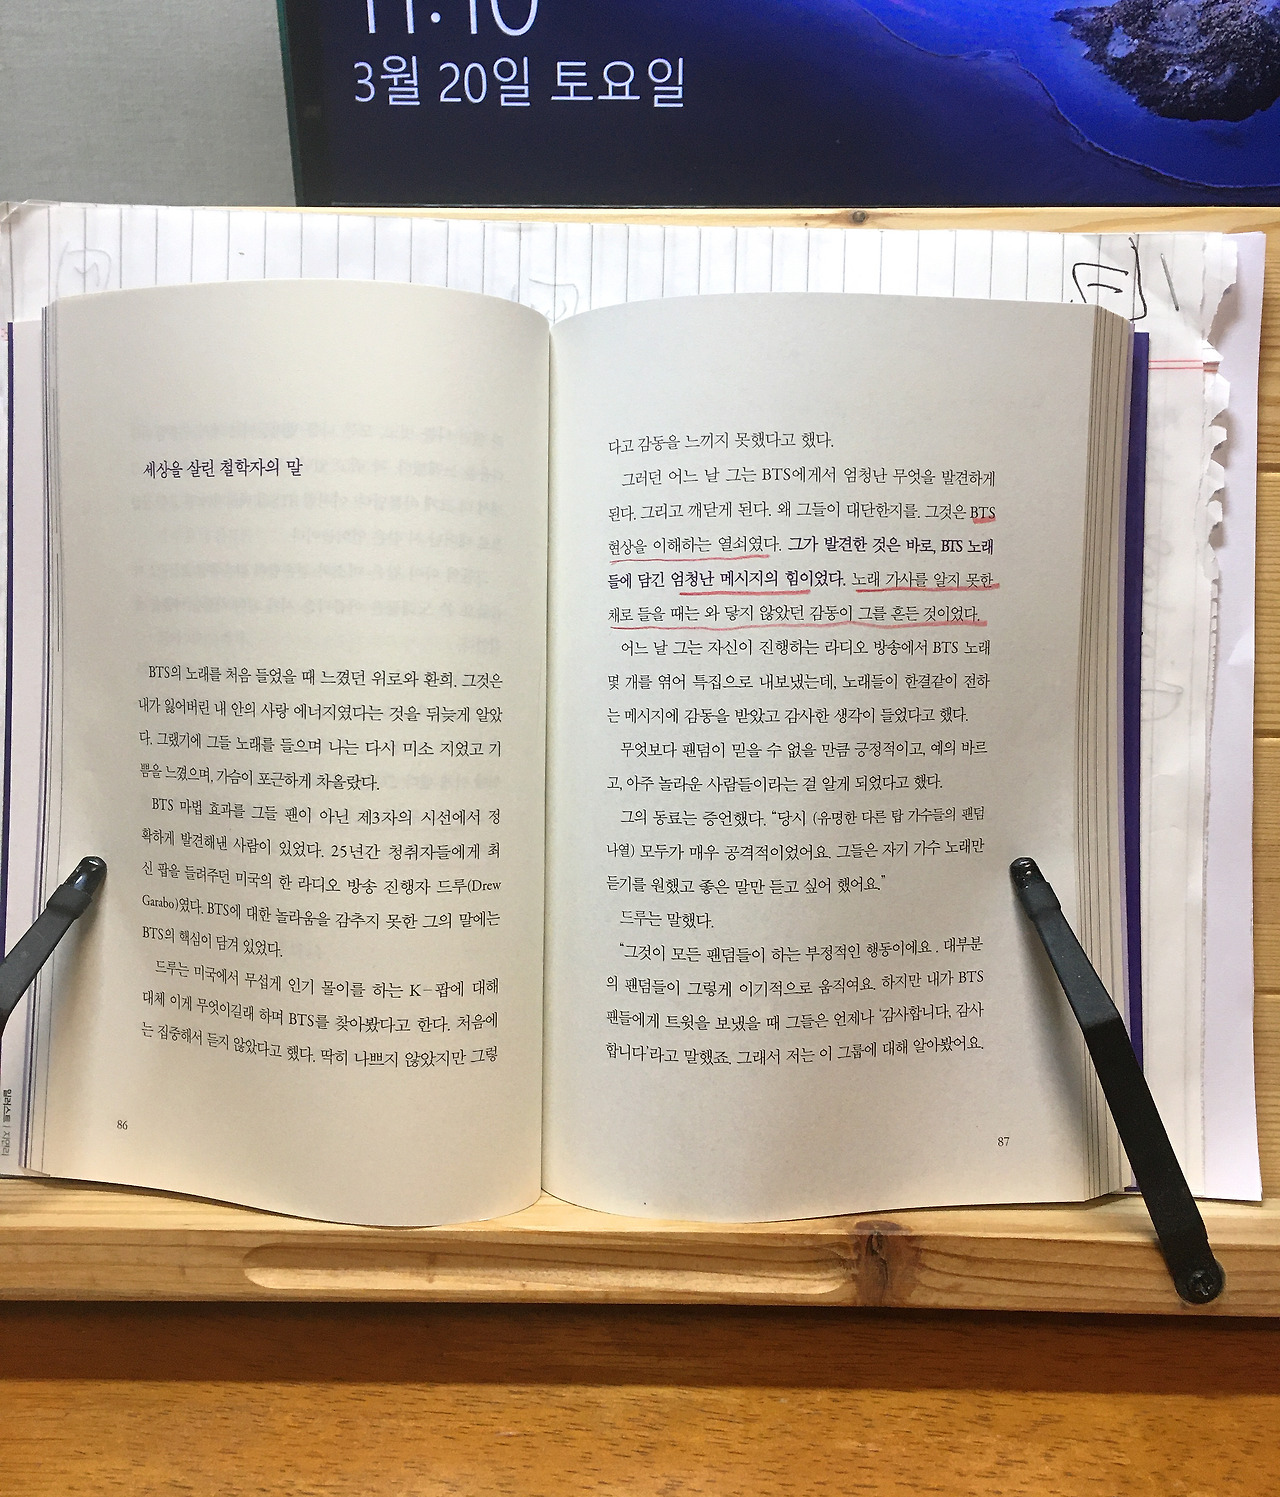 3월 20일 토요일
세상을 살린 철학자의 말
BTS의 노래를 처음 들었을 때 느꼈던 위로와 환희. 그것은
내가 잃어버린 내 안의 사랑 에너지였다는 것을 뒤늦게 알았
다. 그랬기에 그들 노래를 들으며 나는 다시 미소 지었고 기
쁨을 느꼈으며, 가슴이 포근하게 차올랐다.
BTS 마법 효과를 그들 팬이 아닌 제3자의 시선에서 정
확하게 발견해낸 사람이 있었다. 25년간 청취자들에게 최
신 팝을 들려주던 미국의 한 라디오 방송 진행자 드루(Drew
Garabo)였다. BTS에 대한 놀라움을 감추지 못한 그의 말에는
BTS의 핵심이 담겨 있었다.
드루는 미국에서 무섭게 인기 몰이를 하는 K-팝에 대해
대체 이게 무엇이길래 하며 BTS를 찾아봤다고 한다. 처음에
는 집중해서 듣지 않았다고 했다. 딱히 나쁘지 않았지만 그렇
86
다고 감동을 느끼지 못했다고 했다.
그러던 어느 날 그는 BTS에게서 엄청난 무엇을 발견하게
된다. 그리고 깨닫게 된다. 왜 그들이 대단한지를. 그것은 BTS
현상을 이해하는 열쇠였다. 그가 발견한 것은 바로, BTS 노래
들에 담긴 엄청난 메시지의 힘이었다. 노래 가사를 알지 못한
채로 들을 때는 와 닿지 않았던 감동이 그를 흔든 것이었다.
어느 날 그는 자신이 진행하는 라디오 방송에서 BTS 노래
몇 개를 엮어 특집으로 내보냈는데, 노래들이 한결같이 전하
는 메시지에 감동을 받았고 감사한 생각이 들었다고 했다.
무엇보다 팬덤이 믿을 수 없을 만큼 긍정적이고, 예의 바르
고, 아주 놀라운 사람들이라는 걸 알게 되었다고 했다.
그의 동료는 증언했다. “당시 (유명한 다른 탑 가수들의 팬덤
나열) 모두가 매우 공격적이었어요. 그들은 자기 가수 노래만
듣기를 원했고 좋은 말만 듣고 싶어 했어요.”
드루는 말했다.
“그것이 모든 팬덤들이 하는 부정적인 행동이에요. 대부분
의 팬덤들이 그렇게 이기적으로 움직여요. 하지만 내가 BTS
팬들에게 트윗을 보냈을 때 그들은 언제나 ‘감사합니다, 감사
합니다’라고 말했죠. 그래서 저는 이 그룹에 대해 알아봤어요.
87